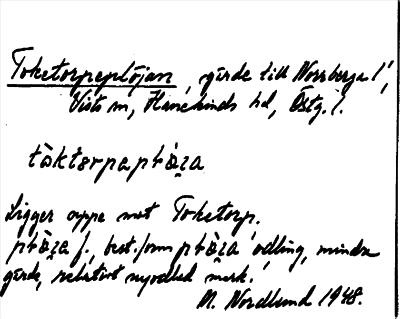 Toketorpeplöjan, gärde till Norrberga /,
Vists sn, Hanekinds hd, Östg. l.
tòktǝrpaplò̜za
Ligger uppe mot Toketorp.
plò̜za f., best. form plò̜za odling, mindre
gärde, relativt nyodlad mark.
N. Nordlund 1948.